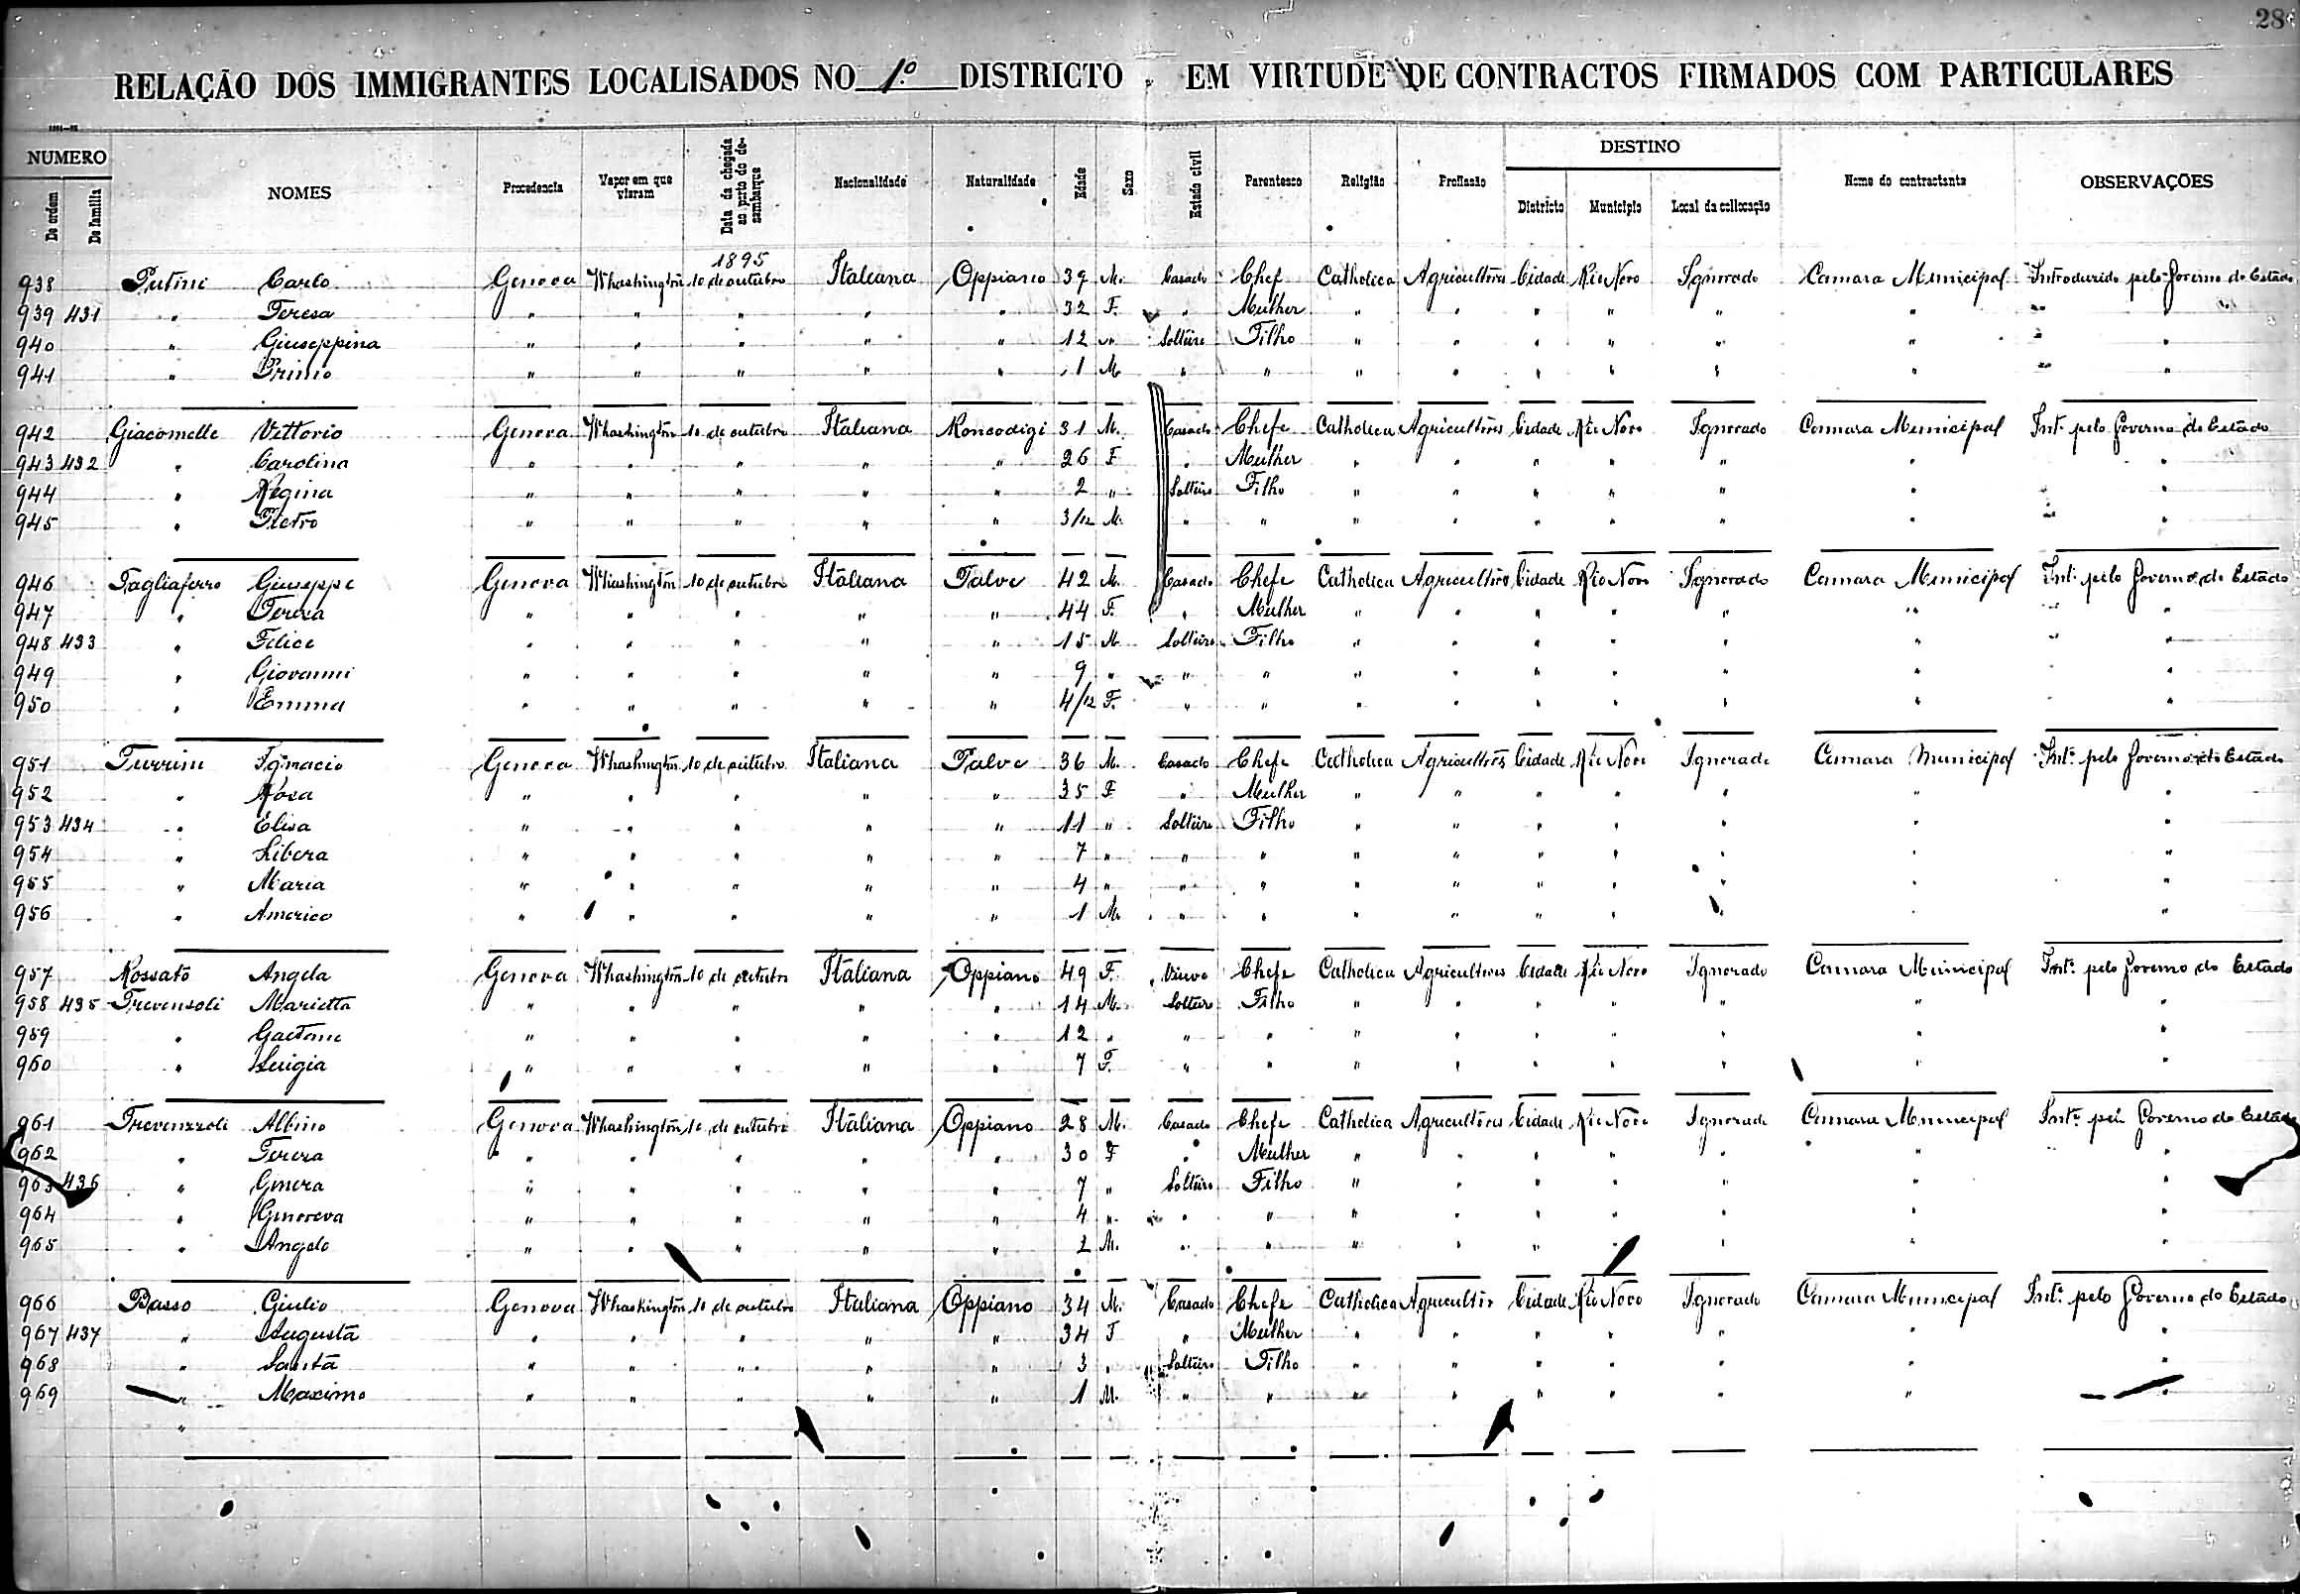 28
RELAÇÃO DOS IMMIGRANTES LOCALISADOS NO 1.º DISTRICTO EM VIRTUDE DE CONTRACTOS FIRMADOS COM PARTICULARES
NUMERO De ordem De familia NOMES Procedencia Vapor em que vieram Data da chegada ao porto do desembarque Nacionalidade Naturalidade Edade Sexo Estado civil Parentesco Religião Profissão DESTINO Districto Municipio Local da collocação Nome do contractante OBSERVAÇÕES
1895
938 Putini Carlo Genova Whashington 10 de outubro Italiana Oppiano 39 M. Casado Chef Catholica Agricultôres Cidade Rio Novo Ignorado Camara Municipal Introduzido pelo Governo do Estado
939 431 " Teresa " " " " " 32 F. " Mulher " " " " " " "
940 " Giuseppina " " " " " 12 " Solteiro Filho " " " " " " "
941 " Primo " " " " " 1 M " " " " " " " " "
942 Giacomelle Vittorio Genova Whashington 10 de outubro Italiana Roncodigi 31 M. Casado Chefe Catholica Agricultôres Cidade Rio Novo Ignorado Camara Municipal Int. pelo Governo do Estado
943 432 " Carolina " " " " " 26 F " Mulher " " " " " " "
944 " Regina " " " " " 2 " Solteiro Filho " " " " " " "
945 " Pietro " " " " " 3/12 M. " " " " " " " " "
946 Tagliaferro Giuseppe Genova Whashington 10 de outubro Italiana Palve 42 M. Casado Chefe Catholica Agricultôres Cidade Rio Novo Ignorado Camara Municipal Int. pelo Governo do Estado
947 " Tereza " " " " " 44 F. " Mulher " " " " " " "
948 433 " Felice " " " " " 15 M Solteiro Filho " " " " " " "
949 " Giovanni " " " " " 9 " " " " " " " " " "
950 " Emma " " " " " 4/12 F. " " " " " " " " "
951 Turrini Ignacio Genova Whashington 10 de outubro Italiana Palve 36 M. Casado Chefe Catholica Agricultôres Cidade Rio Novo Ignorado Camara Municipal Int. pelo Governo do Estado
952 " Rosa " " " " " 35 F " Mulher " " " " " " "
953 434 " Elisa " " " " " 11 " Solteiro Filho " " " " " " "
954 " Libera " " " " " 7 " " " " " " " " " "
955 " Maria " " " " " 4 " " " " " " " " " "
956 " Americo " " " " " 1 M. " " " " " " " " "
957 Rossato Angela Genova Whashington 10 de outubro Italiana Oppiano 49 F. Viuva Chefe Catholica Agricultores Cidade Rio Novo Ignorado Camara Municipal Int. pelo Governo do Estado
958 435 Trevensoli Marietta " " " " " 14 M. Solteiro Filho " " " " " " "
959 " Gaetano " " " " " 12 " " " " " " " " " "
960 " Luigia " " " " " 7 F. " " " " " " " " "
961 Trevenzzoli Albino Genova Whashington 10 de outubro Italiana Oppiano 28 M. Casado Chefe Catholica Agricultôres Cidade Rio Novo Ignorado Camara Municipal Int. pelo Governo do Estado
962 " Tereza " " " " " 30 F " Mulher " " " " " " "
963 436 " Genera " " " " " 7 " Solteiro Filho " " " " " " "
964 " Genoveva " " " " " 4 " " " " " " " " " "
965 " Angelo " " " " " 2 M. " " " " " " " " "
966 Basso Giulio Genova Whashington 10 de outubro Italiana Oppiano 34 M. Casado Chefe Catholica Agricultôr Cidade Rio Novo Ignorado Camara Municipal Int. pelo Governo do Estado
967 437 " Augusta " " " " " 34 F " Mulher " " " " " " "
968 " Santa " " " " " 3 " Solteiro Filho " " " " " " "
969 " Maximo " " " " " 1 M. " " " " " " " " "
"